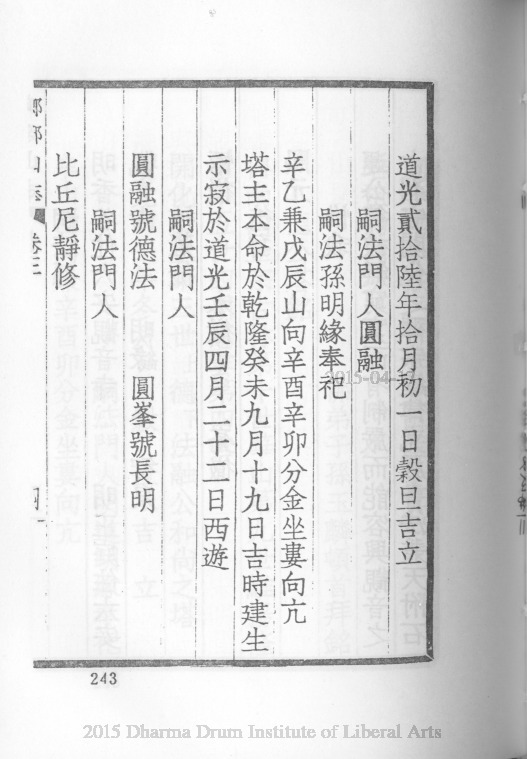 道光貳拾陸年拾月初一日穀旦吉立
嗣法門人圓融
嗣法孫明緣奉祀
辛乙兼戊辰山向辛酉辛卯分金坐婁向亢
塔主本命於乾隆癸未九月十九日吉時建生
示寂於道光壬辰四月二十二日西遊
嗣法門人
圓融號德法 圓峯號長明
嗣法門人
比丘尼靜修
卷三
243
2015 Dharma Drum Institute of Liberal Arts